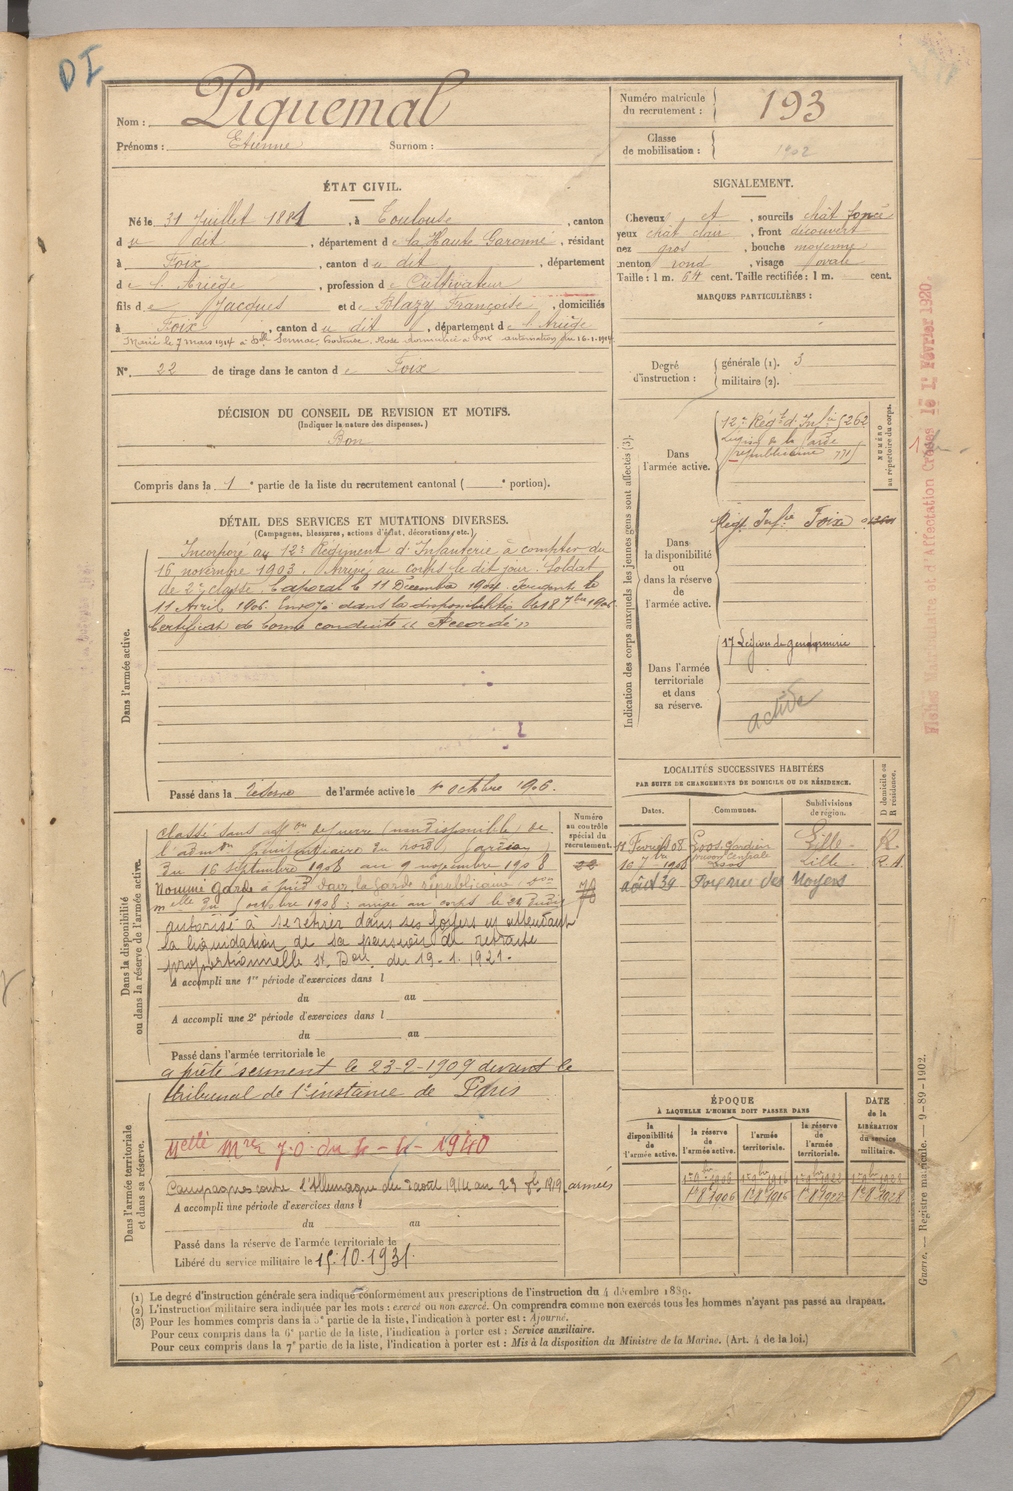 DI
Nom : Piquemal
Prénoms : Etienne Surnom :
Numéro matricule du recrutement : 193
Classe de mobilisation : 1902
ÉTAT CIVIL.
Né le 31 Juillet 1881, à Toulouse, canton
du dit, département de la Haute Garonne, résidant
à Foix, canton du dit, département
de l'Ariège, profession de Cultivateur
fils de Jacques et de Blazy Françoise, domiciliés
à Foix, canton du dit, département de l'Ariège
Marié le 7 mars 1914 à Dlle Sennac, Hortense, Rose domiciliée à Foix autorisation du 16-1-1914
N° 22 de tirage dans le canton de Foix
SIGNALEMENT.
Cheveux et, sourcils chât foncé
yeux chât clair, front découvert
nez gros, bouche moyenne
menton rond, visage ovale
Taille : 1 m. 64 cent. Taille rectifiée : 1 m. cent.
MARQUES PARTICULIÈRES :
Degré d'instruction : générale (1). 3
militaire (2).
DÉCISION DU CONSEIL DE REVISION ET MOTIFS.
(Indiquer la nature des dispenses.)
Bon
Compris dans la 1e partie de la liste du recrutement cantonal ( e portion).
DÉTAIL DES SERVICES ET MUTATIONS DIVERSES.
(Campagnes, blessures, actions d'éclat, décorations, etc.)
Dans l'armée active.
Incorporé au 12e Régiment d'Infanterie à compter du
16 novembre 1903. Arrivé au corps le dit jour. Soldat
de 2e classe. Caporal le 11 Décembre 1904. Sergent le
11 Avril 1906. Envoyé dans la disponibilité le 18 7bre 1906.
Certificat de bonne conduite « Accordé »
Passé dans la réserve de l'armée active le 1er octobre 1906.
Indication des corps auxquels les jeunes gens sont affectés (3).
NUMÉRO au répertoire du corps.
Dans l'armée active.
12e Régt d'Infie 5262
Légion de la Garde
républicaine 771
Dans la disponibilité ou dans la réserve de l'armée active.
Régt Infie Foix
Dans l'armée territoriale et dans sa réserve.
17 Légion de gendarmerie
active
Fiches Matriculaire et d'Affectation Créées le 1er Février 1920
LOCALITÉS SUCCESSIVES HABITÉES
PAR SUITE DE CHANGEMENTS DE DOMICILE OU DE RÉSIDENCE.
Dates. Communes. Subdivisions de région. D domicile ou R résidence.
11 Février 08 Loos Lille R.
maison centrale
10 7bre 1908 Loos Lille R.
août 39 Foix rue des Noyers
Dans la disponibilité ou dans la réserve de l'armée active.
Numéro au contrôle spécial du recrutement.
Classé sans affon de guerre (non disponible) de
l'admon pénitentiaire du nord, gardien
du 16 septembre 1908 au 9 novembre 1908
Nommé Garde à pied dans la Garde républicaine
octobre 1908 : arrivé au corps le 24 dudit
autorisé à se retirer dans ses foyers en attendant
la liquidation de sa pension de retraite
proportionnelle du 19.1.1921.
A accompli une 1re période d'exercices dans l
du au
A accompli une 2e période d'exercices dans l
du au
Passé dans l'armée territoriale le
a prêté serment le 23-2-1909 devant le
tribunal de 1re instance de Paris
Dans l'armée territoriale et dans sa réserve.
1940
Campagnes contre l'Allemagne du 2 août 1914 au 23 1919 armées
A accompli une période d'exercices dans l
du au
Passé dans la réserve de l'armée territoriale le
Libéré du service militaire le 15.10.1931.
ÉPOQUE
À LAQUELLE L'HOMME DOIT PASSER DANS
la disponibilité de l'armée active.
la réserve de l'armée active.
l'armée territoriale.
la réserve de l'armée territoriale.
DATE de la LIBÉRATION du service militaire.
(1) Le degré d'instruction générale sera indiqué conformément aux prescriptions de l'instruction du 4 décembre 1889.
(2) L'instruction militaire sera indiquée par les mots : exercé ou non exercé. On comprendra comme non exercés tous les hommes n'ayant pas passé au drapeau.
(3) Pour les hommes compris dans la 5e partie de la liste, l'indication à porter est : Ajourné.
Pour ceux compris dans la 6e partie de la liste, l'indication à porter est : Service auxiliaire.
Pour ceux compris dans la 7e partie de la liste, l'indication à porter est : Mis à la disposition du Ministre de la Marine. (Art. 4 de la loi.)
Guerre. — Registre matricule. — 9-89-1902.